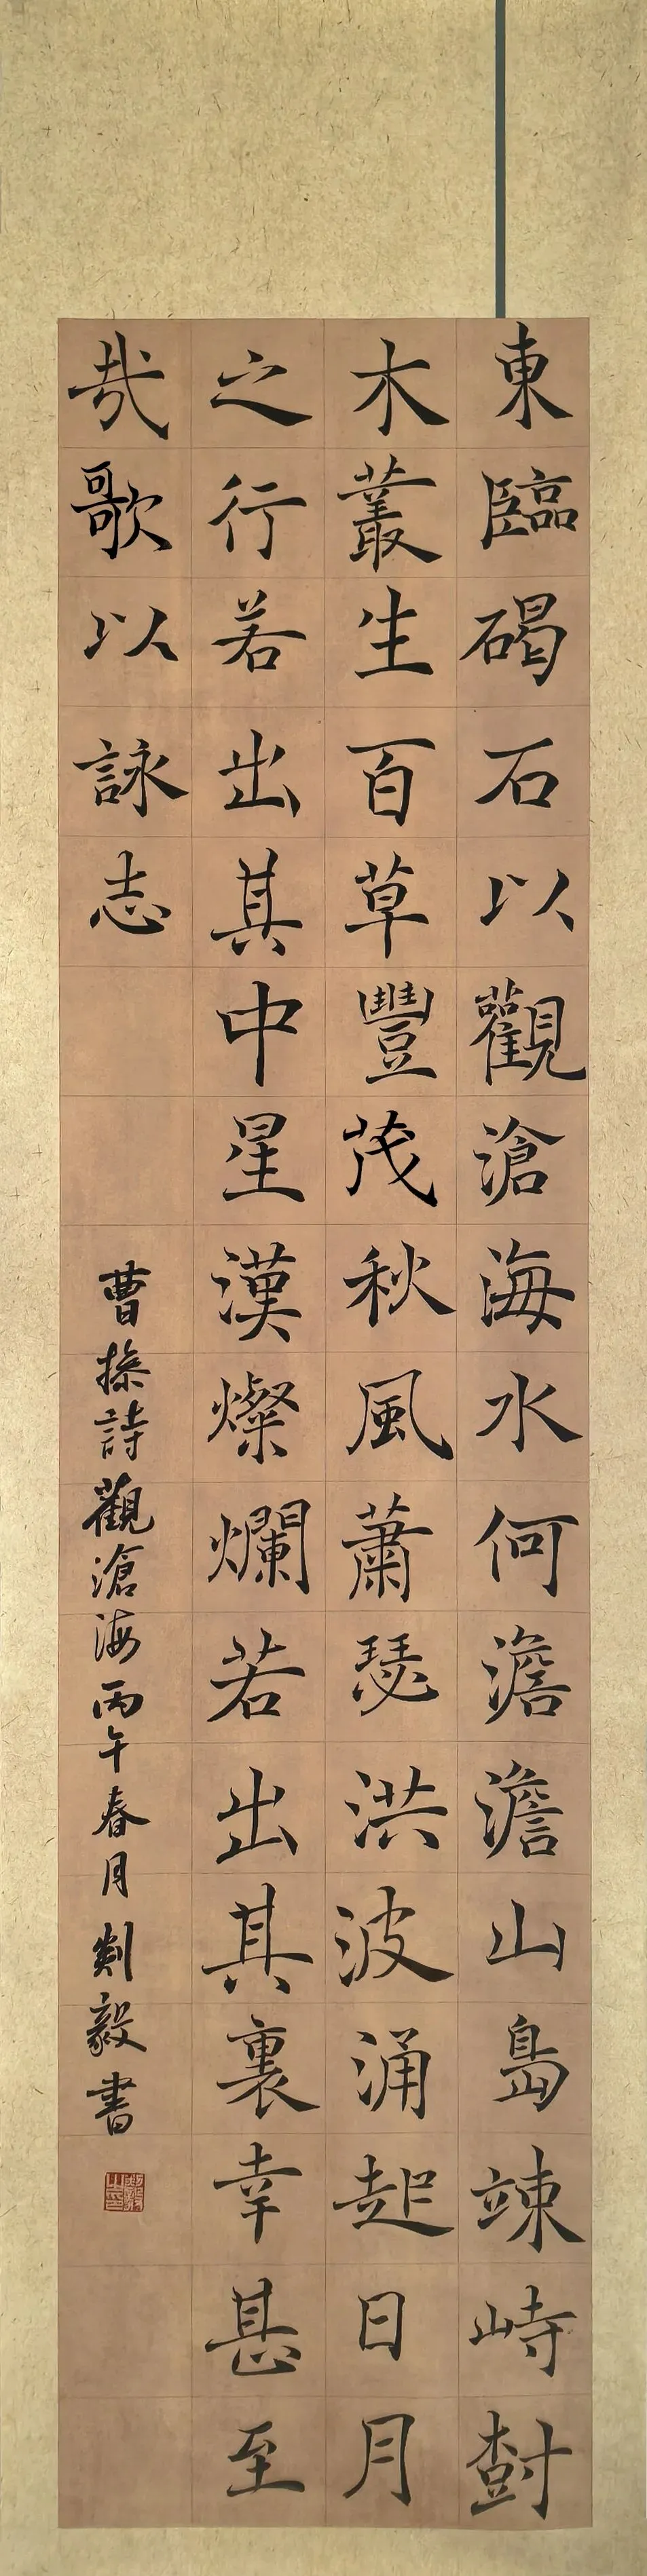 東臨碣石以觀滄海水何澹澹山島竦峙樹
木叢生百草豐茂秋風蕭瑟洪波涌起日月
之行若出其中星漢燦爛若出其裏幸甚至
哉歌以詠志
曹操詩觀滄海丙午春月劉毅書